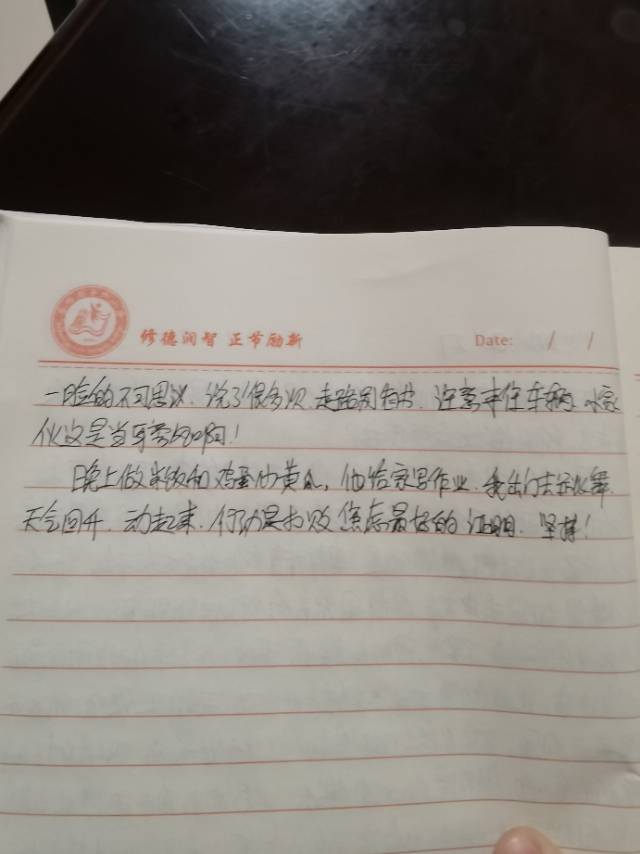 修德润智 正节励新
Date: / /
一脸的不可思议.说了很多次.走路别看书.注意来往车辆.小家
伙这是当耳旁风啊!
晚上做米饭和鸡蛋炒黄瓜,他给家写作业.我出门去 舞
天气回升.动起来.行动是打败焦虑最好的证明.坚持!